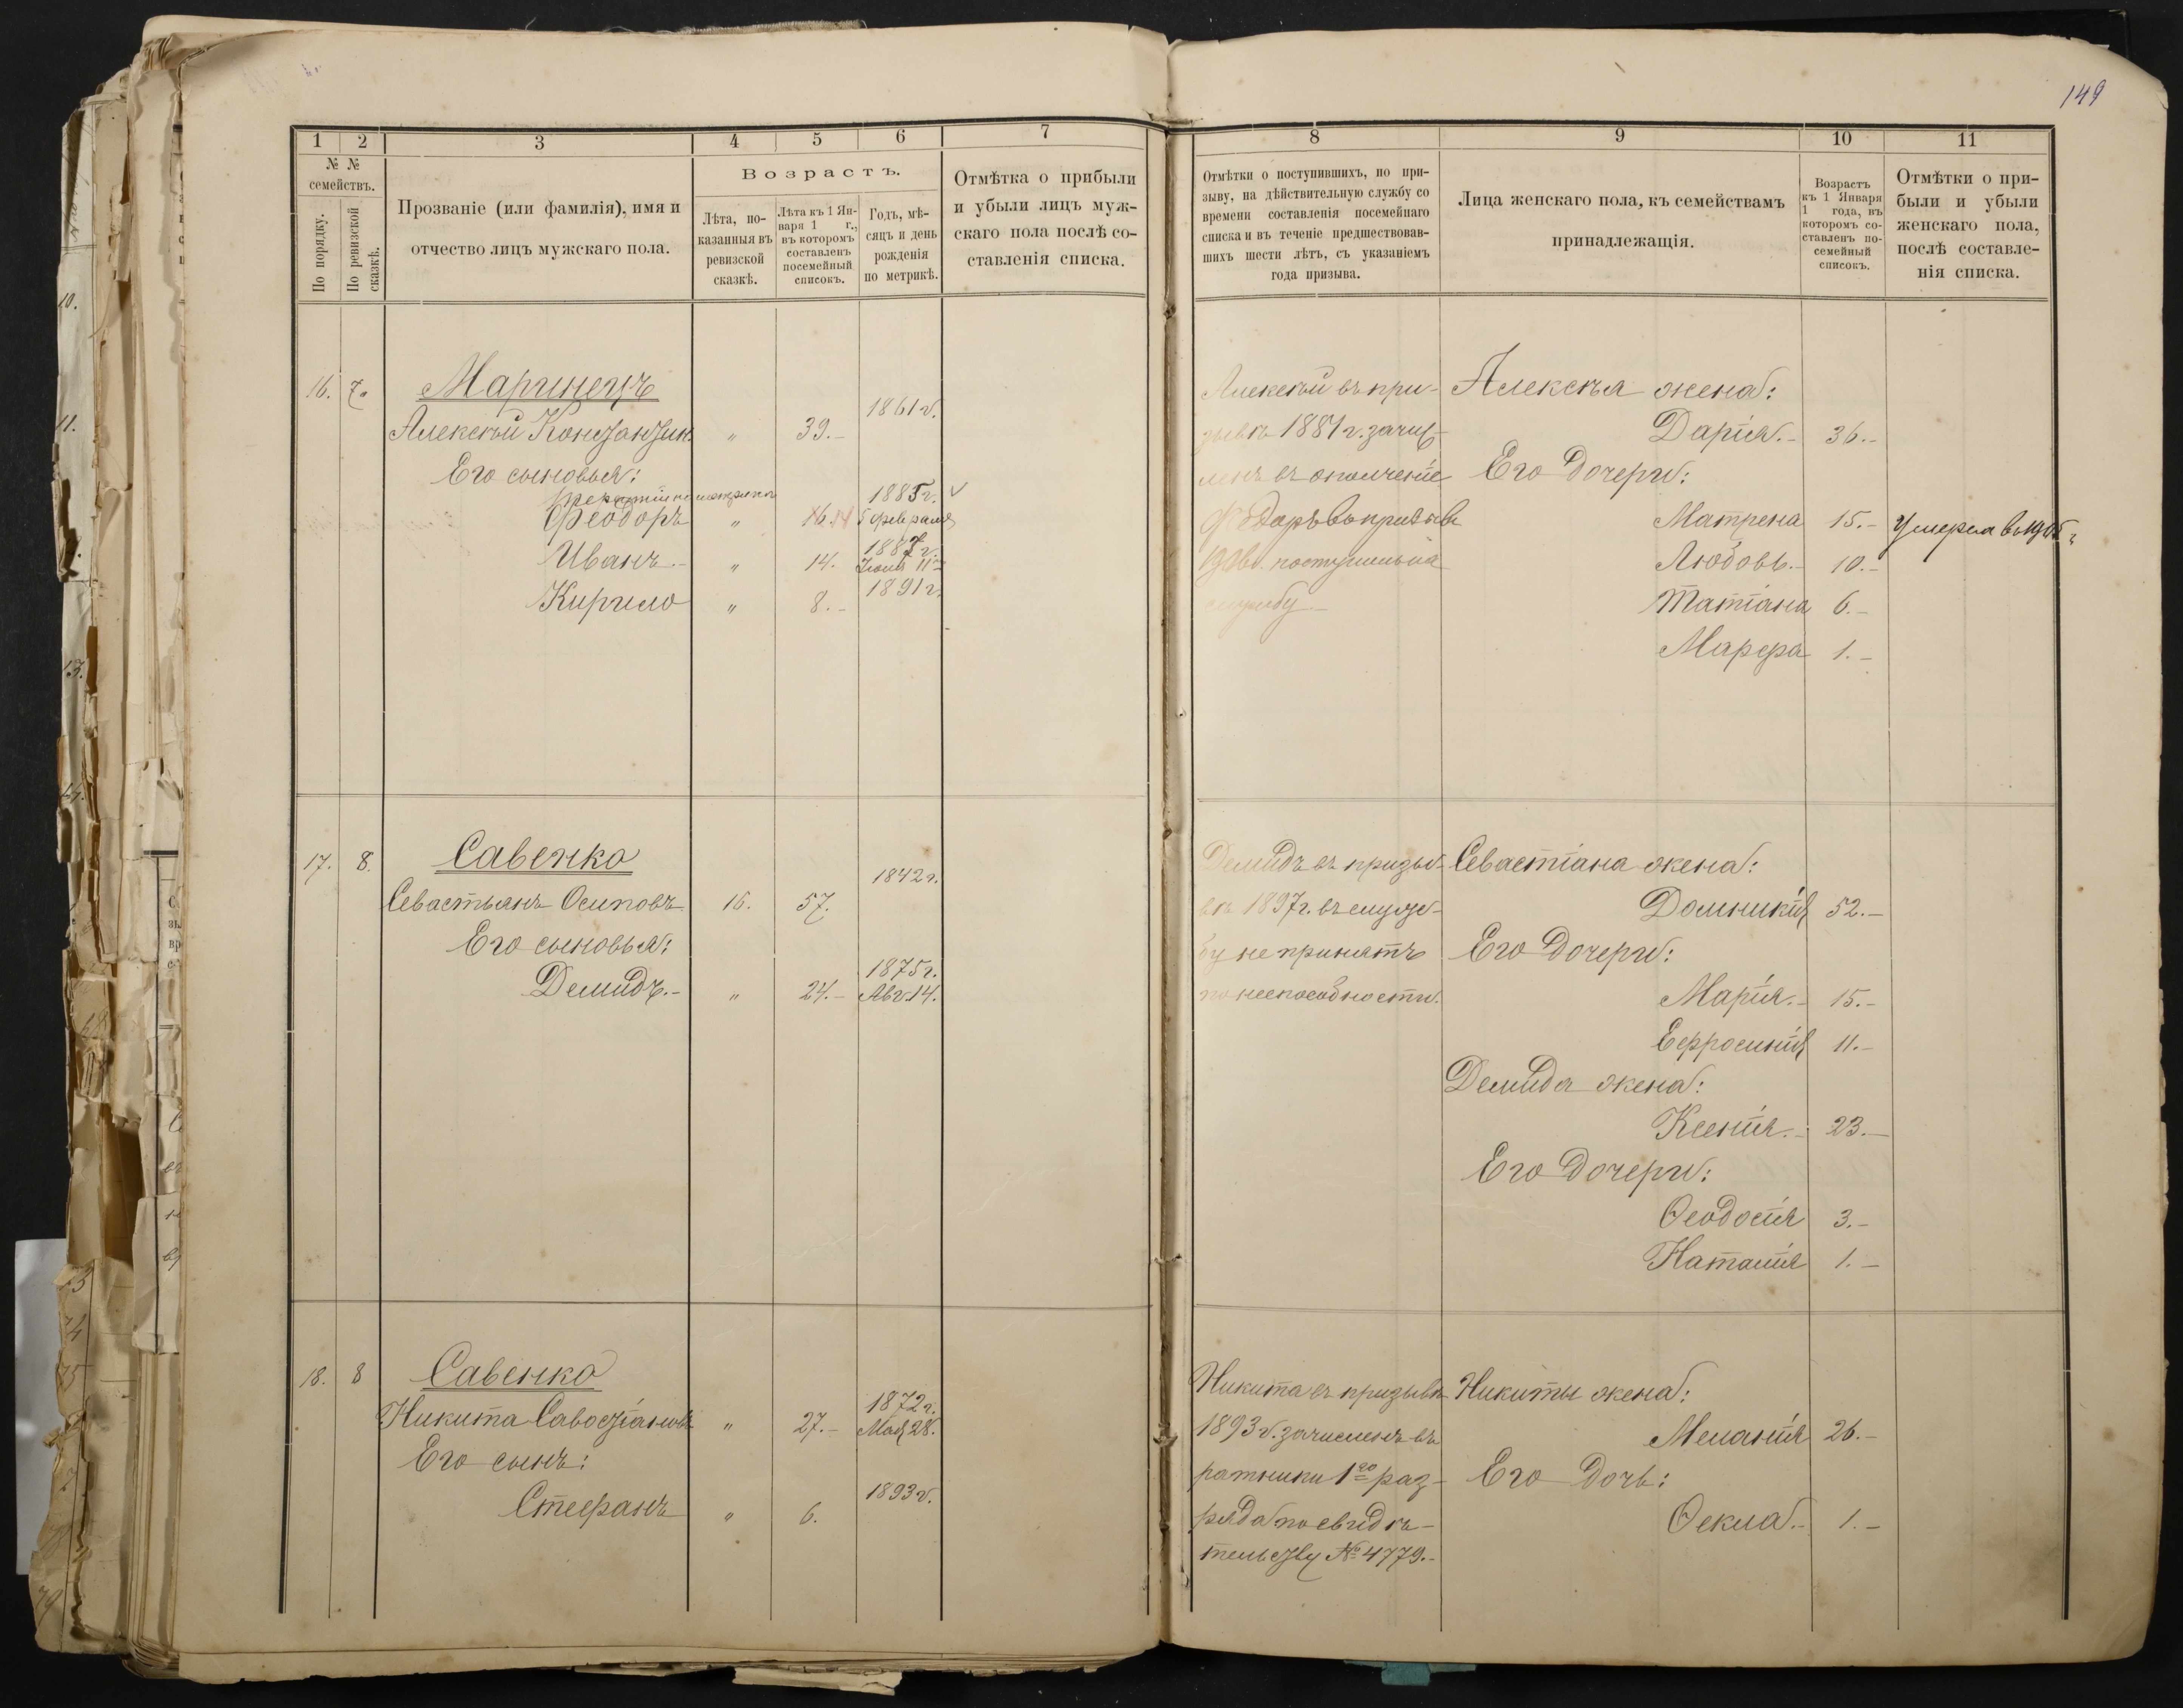 149
1
2
3
4
5
6
7
№ №
семействъ.
По порядку.
По ревизской
сказкѣ.
Прозваніе (или фамилія), имя и
отчество лицъ мужскаго пола.
Возрастъ.
Лѣта, по-
казанныя въ
ревизской
сказкѣ.
Лѣта къ 1 Ян-
варя 1 г.,
въ которомъ
составленъ
посемейный
списокъ.
Годъ, мѣ-
сяцъ и день
рожденія
по метрикѣ.
Отмѣтка о прибыли
и убыли лицъ муж-
скаго пола послѣ со-
ставленія списка.
16. 7. Маринецъ
1861 г.
Алексѣй Констанзин. " 39.-
Его сыновья:
1885 г. ✓
Феодоръ " 16. 14 5 февраля
1887 г.
Иванъ.- " 14. Іюня 11
1891 г.
Кирило " 8.-
17. 8. Савенко
1842 г.
Севастьянъ Осиповъ 16. 57.
Его сыновья:
1875 г.
Демидъ.- " 24.- Авг. 14.
18. 8 Савенко
1872 г.
Никита Савостіановъ " 27.- Мая 28.
Его сынъ:
1893 г.
Стефанъ " 6.
8
9
10
11
Отмѣтки о поступившихъ, по при-
зыву, на дѣйствительную службу со
времени составленія посемейнаго
списка и въ теченіе предшествовав-
шихъ шести лѣтъ, съ указаніемъ
года призыва.
Лица женскаго пола, къ семействамъ
принадлежащія.
Возрастъ
къ 1 Января
1 года, въ
которомъ со-
ставленъ по-
семейный
списокъ.
Отмѣтки о при-
были и убыли
женскаго пола,
послѣ составле-
нія списка.
Алексѣй въ при-
зывѣ 1881 г. зачис-
ленъ въ ополченіе
Федоръ въ призывъ
1906 г. поступилъ на
службу
Алексѣя жена:
Дарія.- 36.-
Его дочери:
Матрена 15.- Умерла въ 1905 г
Любовь.- 10.-
Татіана 6.-
Марфа 1.-
Демидъ въ призы-
вѣ 1897 г. въ служ-
бу не принятъ
по неспособности.
Севастіана жена:
Домникія 52.-
Его дочери:
Марія.- 15.-
Ефросинія 11.-
Демида жена:
Ксенія.- 23.-
Его дочери:
Ѳеодосія 3.-
Наталія 1.-
Никита въ призывѣ
1893 г. зачисленъ въ
ратники 1го раз-
ряда по свидѣ-
тельству № 4779.-
Никиты жена:
Меланія 26.-
Его дочь:
Ѳекла.- 1.-